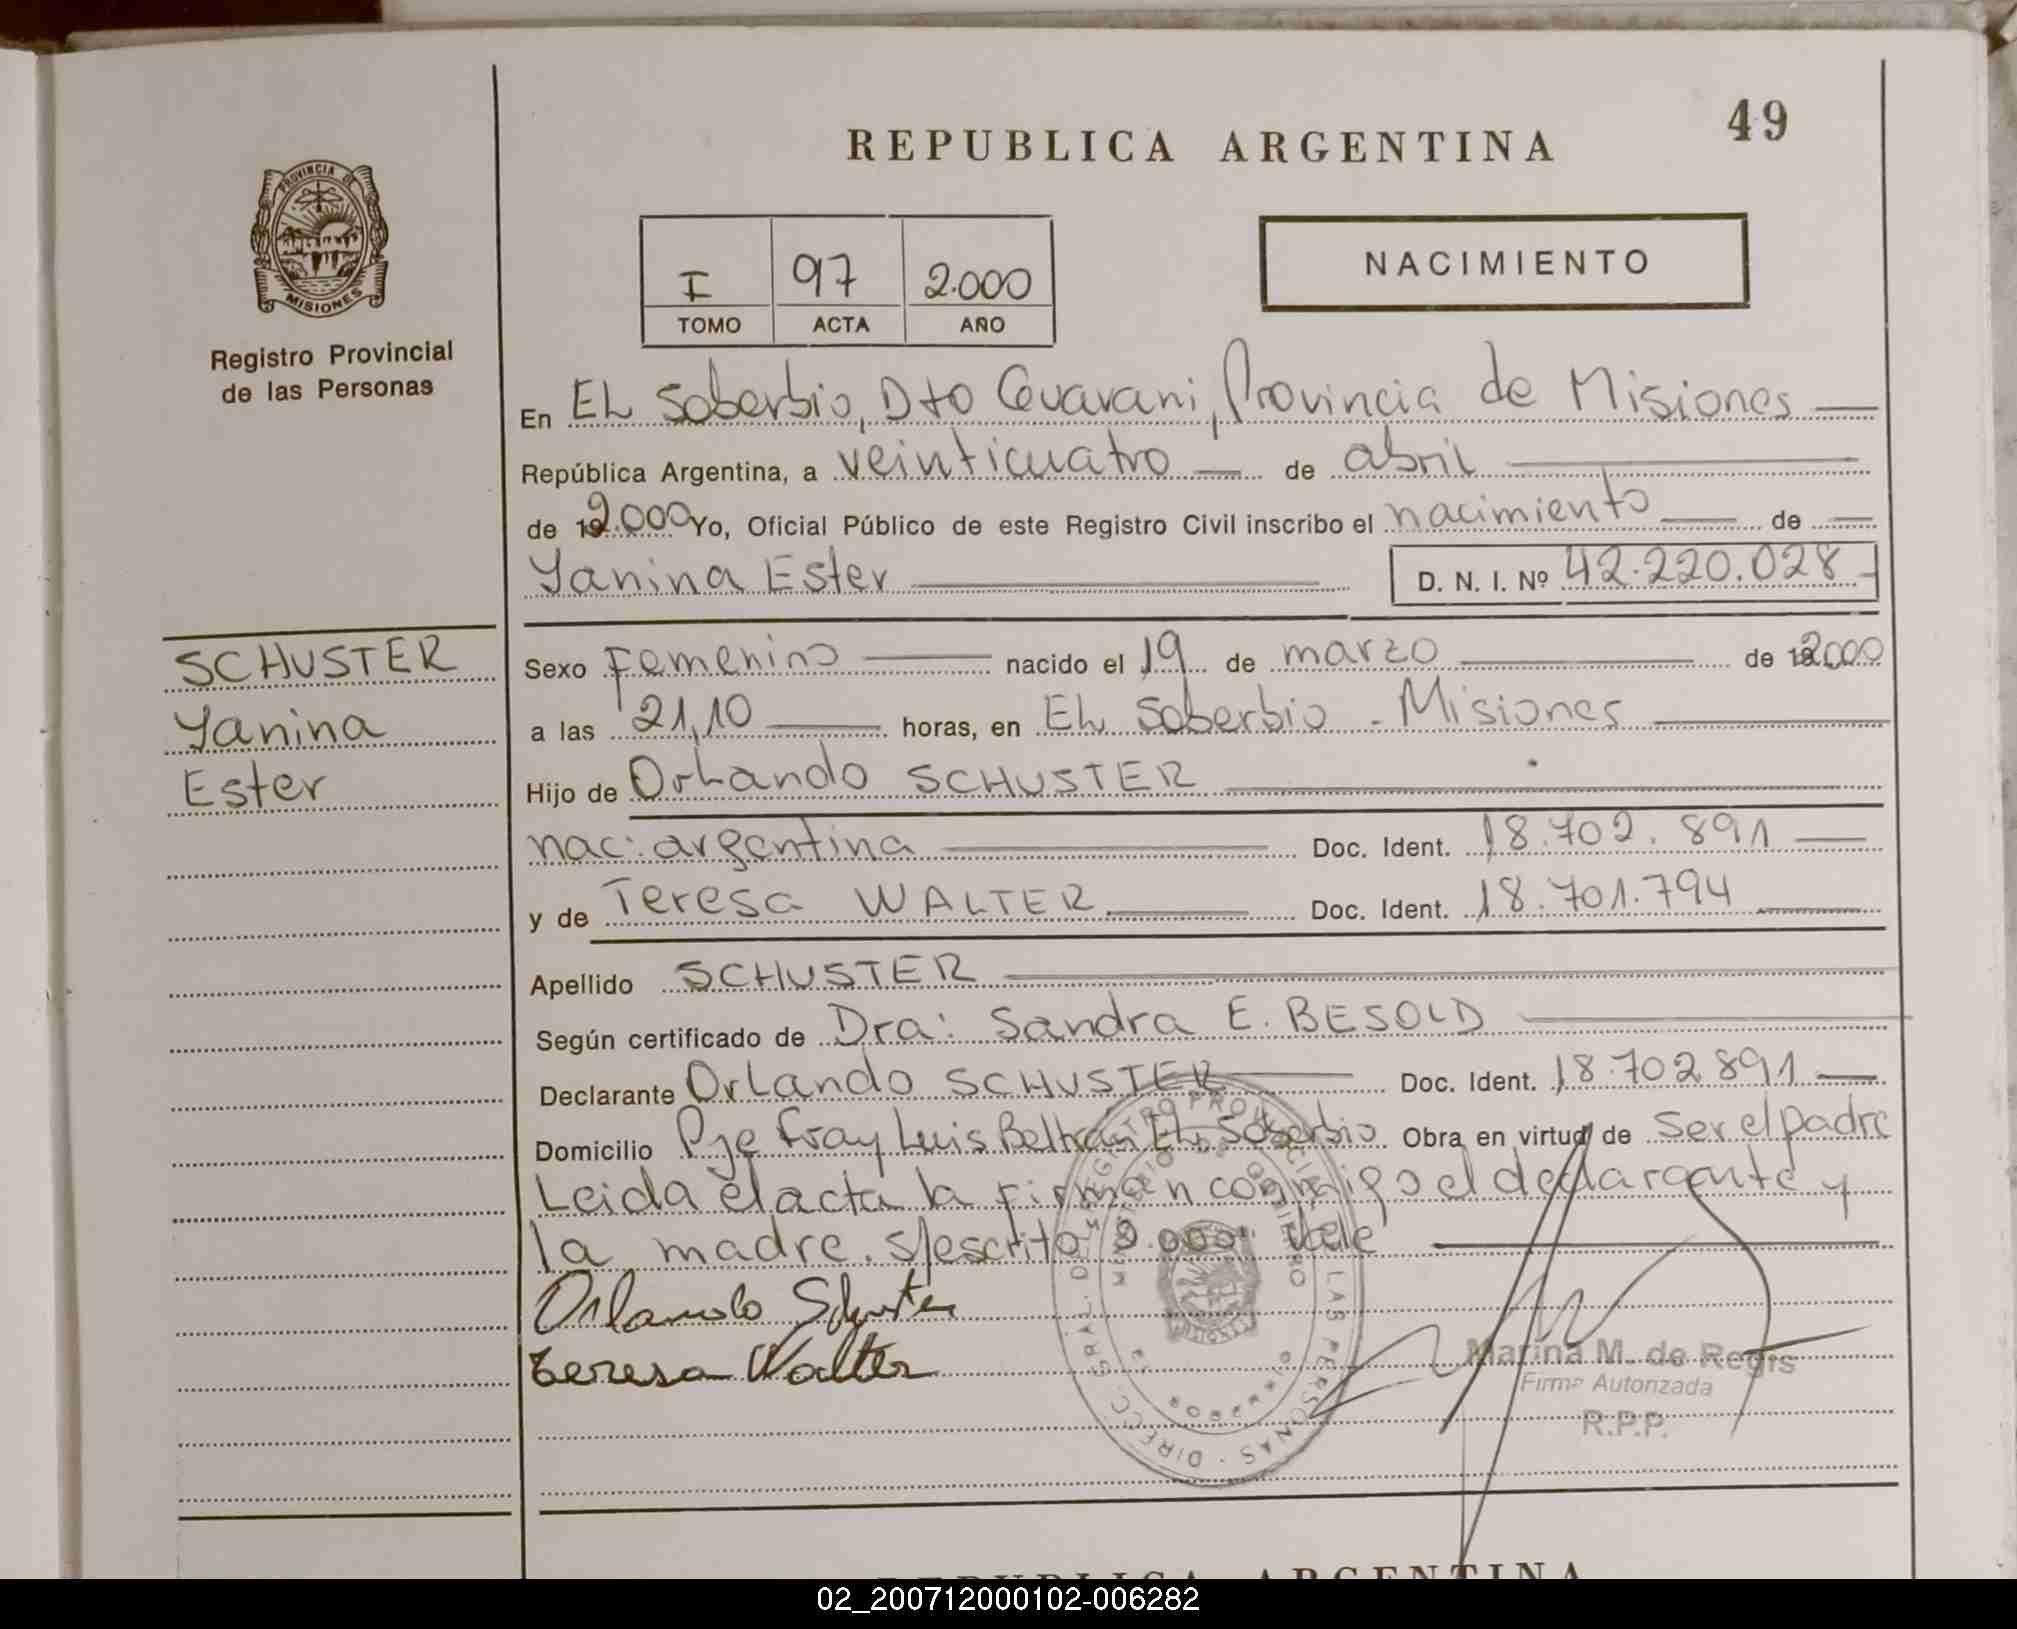 49
REPUBLICA ARGENTINA
PROVINCIA DE
MISIONES
Registro Provincial
de las Personas
I 97 2.000
TOMO ACTA AÑO
NACIMIENTO
En EL Soberbio, Dto Guarani, Provincia de Misiones
República Argentina, a veinticuatro de abril
de 192.000 Yo, Oficial Público de este Registro Civil inscribo el nacimiento de
Yanina Ester D. N. I. Nº 42.220.028
SCHUSTER
Yanina
Ester
Sexo Femenino nacido el 19 de marzo de 192000
a las 21,10 horas, en EL Soberbio - Misiones
Hijo de Orlando SCHUSTER
nac: argentina Doc. Ident. 18.702.891
y de Teresa WALTER Doc. Ident. 18.701.794
Apellido SCHUSTER
Según certificado de Dra: Sandra E. BESOLD
Declarante Orlando SCHUSTER Doc. Ident. 18.702891
Domicilio Pje Fray Luis Beltran EL Soberbio Obra en virtud de ser el padre
Leida el acta la firman conmigo el declarante y
la madre. s/escrito 2.000: Vale
Orlando Schuster
Teresa Walter
Marina M. de Regis
Firma Autorizada
R.P.P.
REPUBLICA ARGENTINA
02_200712000102-006282